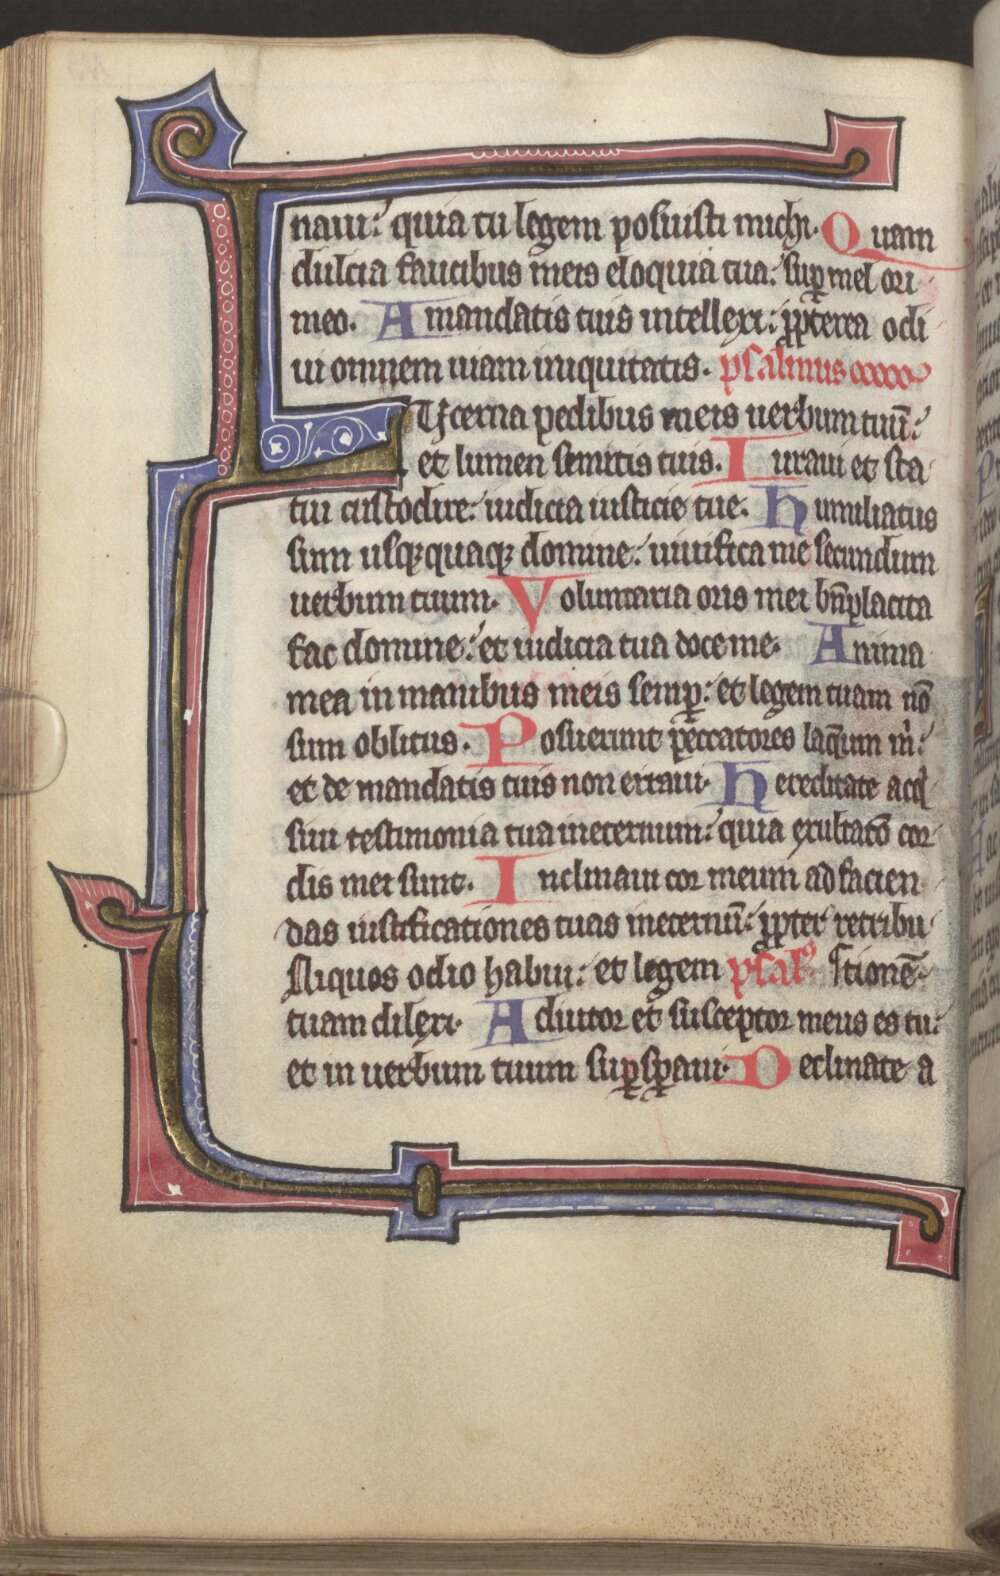 naui: quia tu legem posuisti michi. Quam
dulcia faucibus meis eloquia tua: sup̱ mel ori
meo. A mandatis tuis intellexi: ꝓpterea odi
ui omnem uiam iniquitatis. psalmus
Lucerna pedibus meis uerbum tuū:
et lumen semitis tuis. Iuraui et sta
tui custodire: iudicia iusticie tue. Humiliatus
sum usqꝫquaqꝫ domine: uiuifica me secundum
uerbum tuum. Voluntaria oris mei bn̄placita
fac domine: et iudicia tua doce me. Anima
mea in manibus meis semꝑ: et legem tuam nō
sum oblitus. Posuerunt peccatores laq̄um m̍:
et de mandatis tuis non erraui. Hereditate acq̍
siui testimonia tua ineternum: quia exultatō cor
dis mei sunt. Inclinaui cor meum ad facien
das iustificationes tuas ineternū: ꝓpter retribu
Niquos odio habui: et legem psalꝰ. tionē.
tuam dilexi. Adiutor et susceptor meus es tu:
et in uerbum tuum suꝑsꝑaui. Declinate a